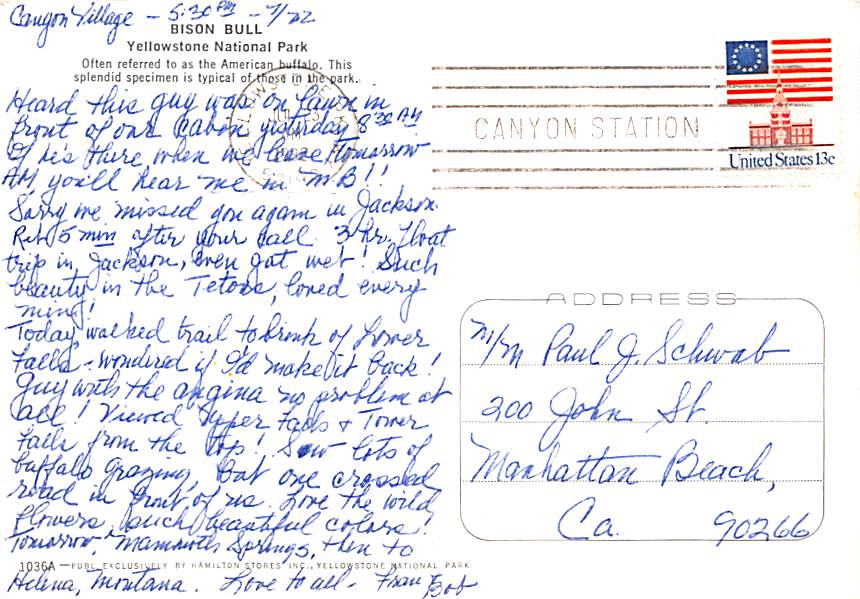 Canyon Village - 5:30 PM - 7/22
BISON BULL
Yellowstone National Park
Often referred to as the American buffalo. This
splendid specimen is typical of those in the park.
Heard this guy was on lawn in
front of our Cabin yesterday 8:30 AM
If he's there when we leave tomorrow
AM, you'll hear me in M B!!
Sorry we missed you again in Jackson.
Ret. 5 min after your call. 3 hr. float
trip in Jackson, even got wet! Such
beauty in the Tetons, loved every
min!
Today, walked trail to brink of Lower
Falls - wondered if I'd make it back!
Guy with the angina no problem at
all! Viewed Upper Falls & Tower
Falls from the top! Saw lots of
buffalo grazing, but one crossed
road in front of us. Love the wild
flowers, such beautiful colors!
Tomorrow, Mammoth Springs, then to
Helena, Montana. Love to all - Fran Bob
1036A — PUBL. EXCLUSIVELY BY HAMILTON STORES INC., YELLOWSTONE NATIONAL PARK
CANYON STATION
United States 13c
ADDRESS
M/M Paul J. Schwab
200 John St.
Manhattan Beach,
Ca. 90266